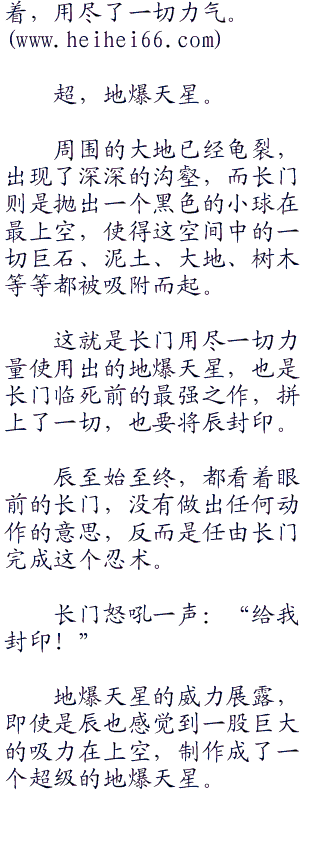 着，用尽了一切力气。
(www.heihei66.com)
超，地爆天星。
周围的大地已经龟裂，
出现了深深的沟壑，而长门
则是抛出一个黑色的小球在
最上空，使得这空间中的一
切巨石、泥土、大地、树木
等等都被吸附而起。
这就是长门用尽一切力
量使用出的地爆天星，也是
长门临死前的最强之作，拼
上了一切，也要将辰封印。
辰至始至终，都看着眼
前的长门，没有做出任何动
作的意思，反而是任由长门
完成这个忍术。
长门怒吼一声：“给我
封印！”
地爆天星的威力展露，
即使是辰也感觉到一股巨大
的吸力在上空，制作成了一
个超级的地爆天星。